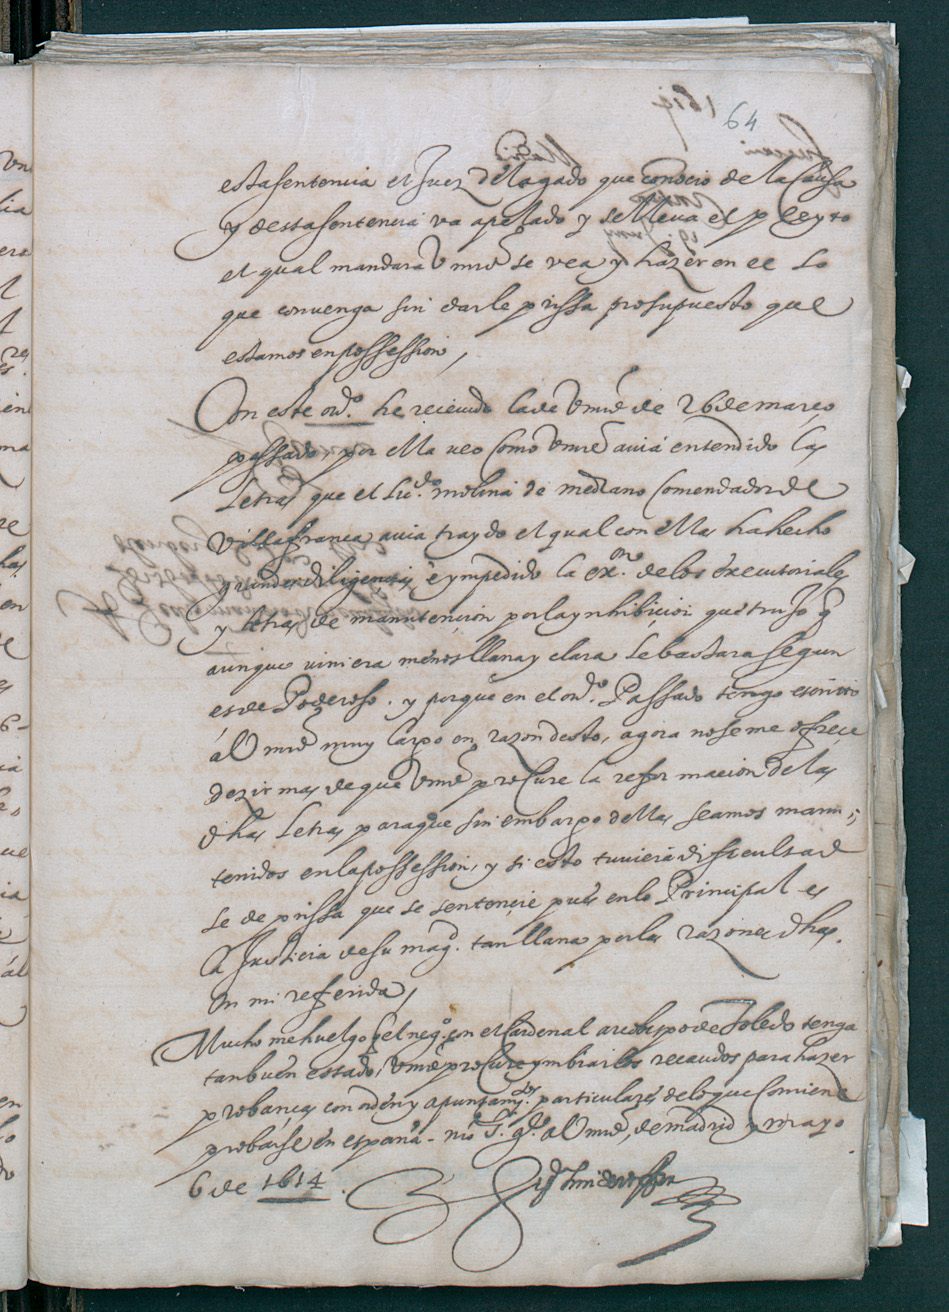 64
esta sentencia el Juez delegado que conocio de la Causa
y desta sentencia va apelado y se lleva el pleyto
el qual mandara Vmd se vea y hazer en el lo
que convenga sin darle prissa presupuesto que
estamos en possession,
Con este ord.º he recevido la de Vmd de 26 de março
passado, por ella veo como Vmd avia entendido las
Letras que el Liç.do molina de medrano Comendador de
Villafranca avia traydo el qual con ellas ha hecho
grandes diligencias, e ympedido la ex.on de los executoriales
y letras de manutençion por la ynhibiçion que truxo q
aunque viniera menos llana y clara le bastara segun
es de Poderoso. y porque en el ord.º Passado tengo escritto
a Vmd muy largo en razon desto, agora no se me ofreçe
dezir mas de que Vmd procure la reformacion de las
dhas Letras para que sin embargo dellas seamos mann
tenidos en la possession, y si esto tuviera difficultad
se de prissa que se sentençie pues en lo Principal es
la Justicia de su magd. tan llana por las razones dhas.
en mi referida,
Mucho me huelgo q el neg.º con el Cardenal arcobispo de Toledo tenga
tan buen estado, Vmd procure ymbiar los recaudos para hazer
probanças con orden y apuntam.tos particulares de lo que Conviene
probarse en españa - nro S. g.de a Vmd, de madrid y mayo
6 de 1614